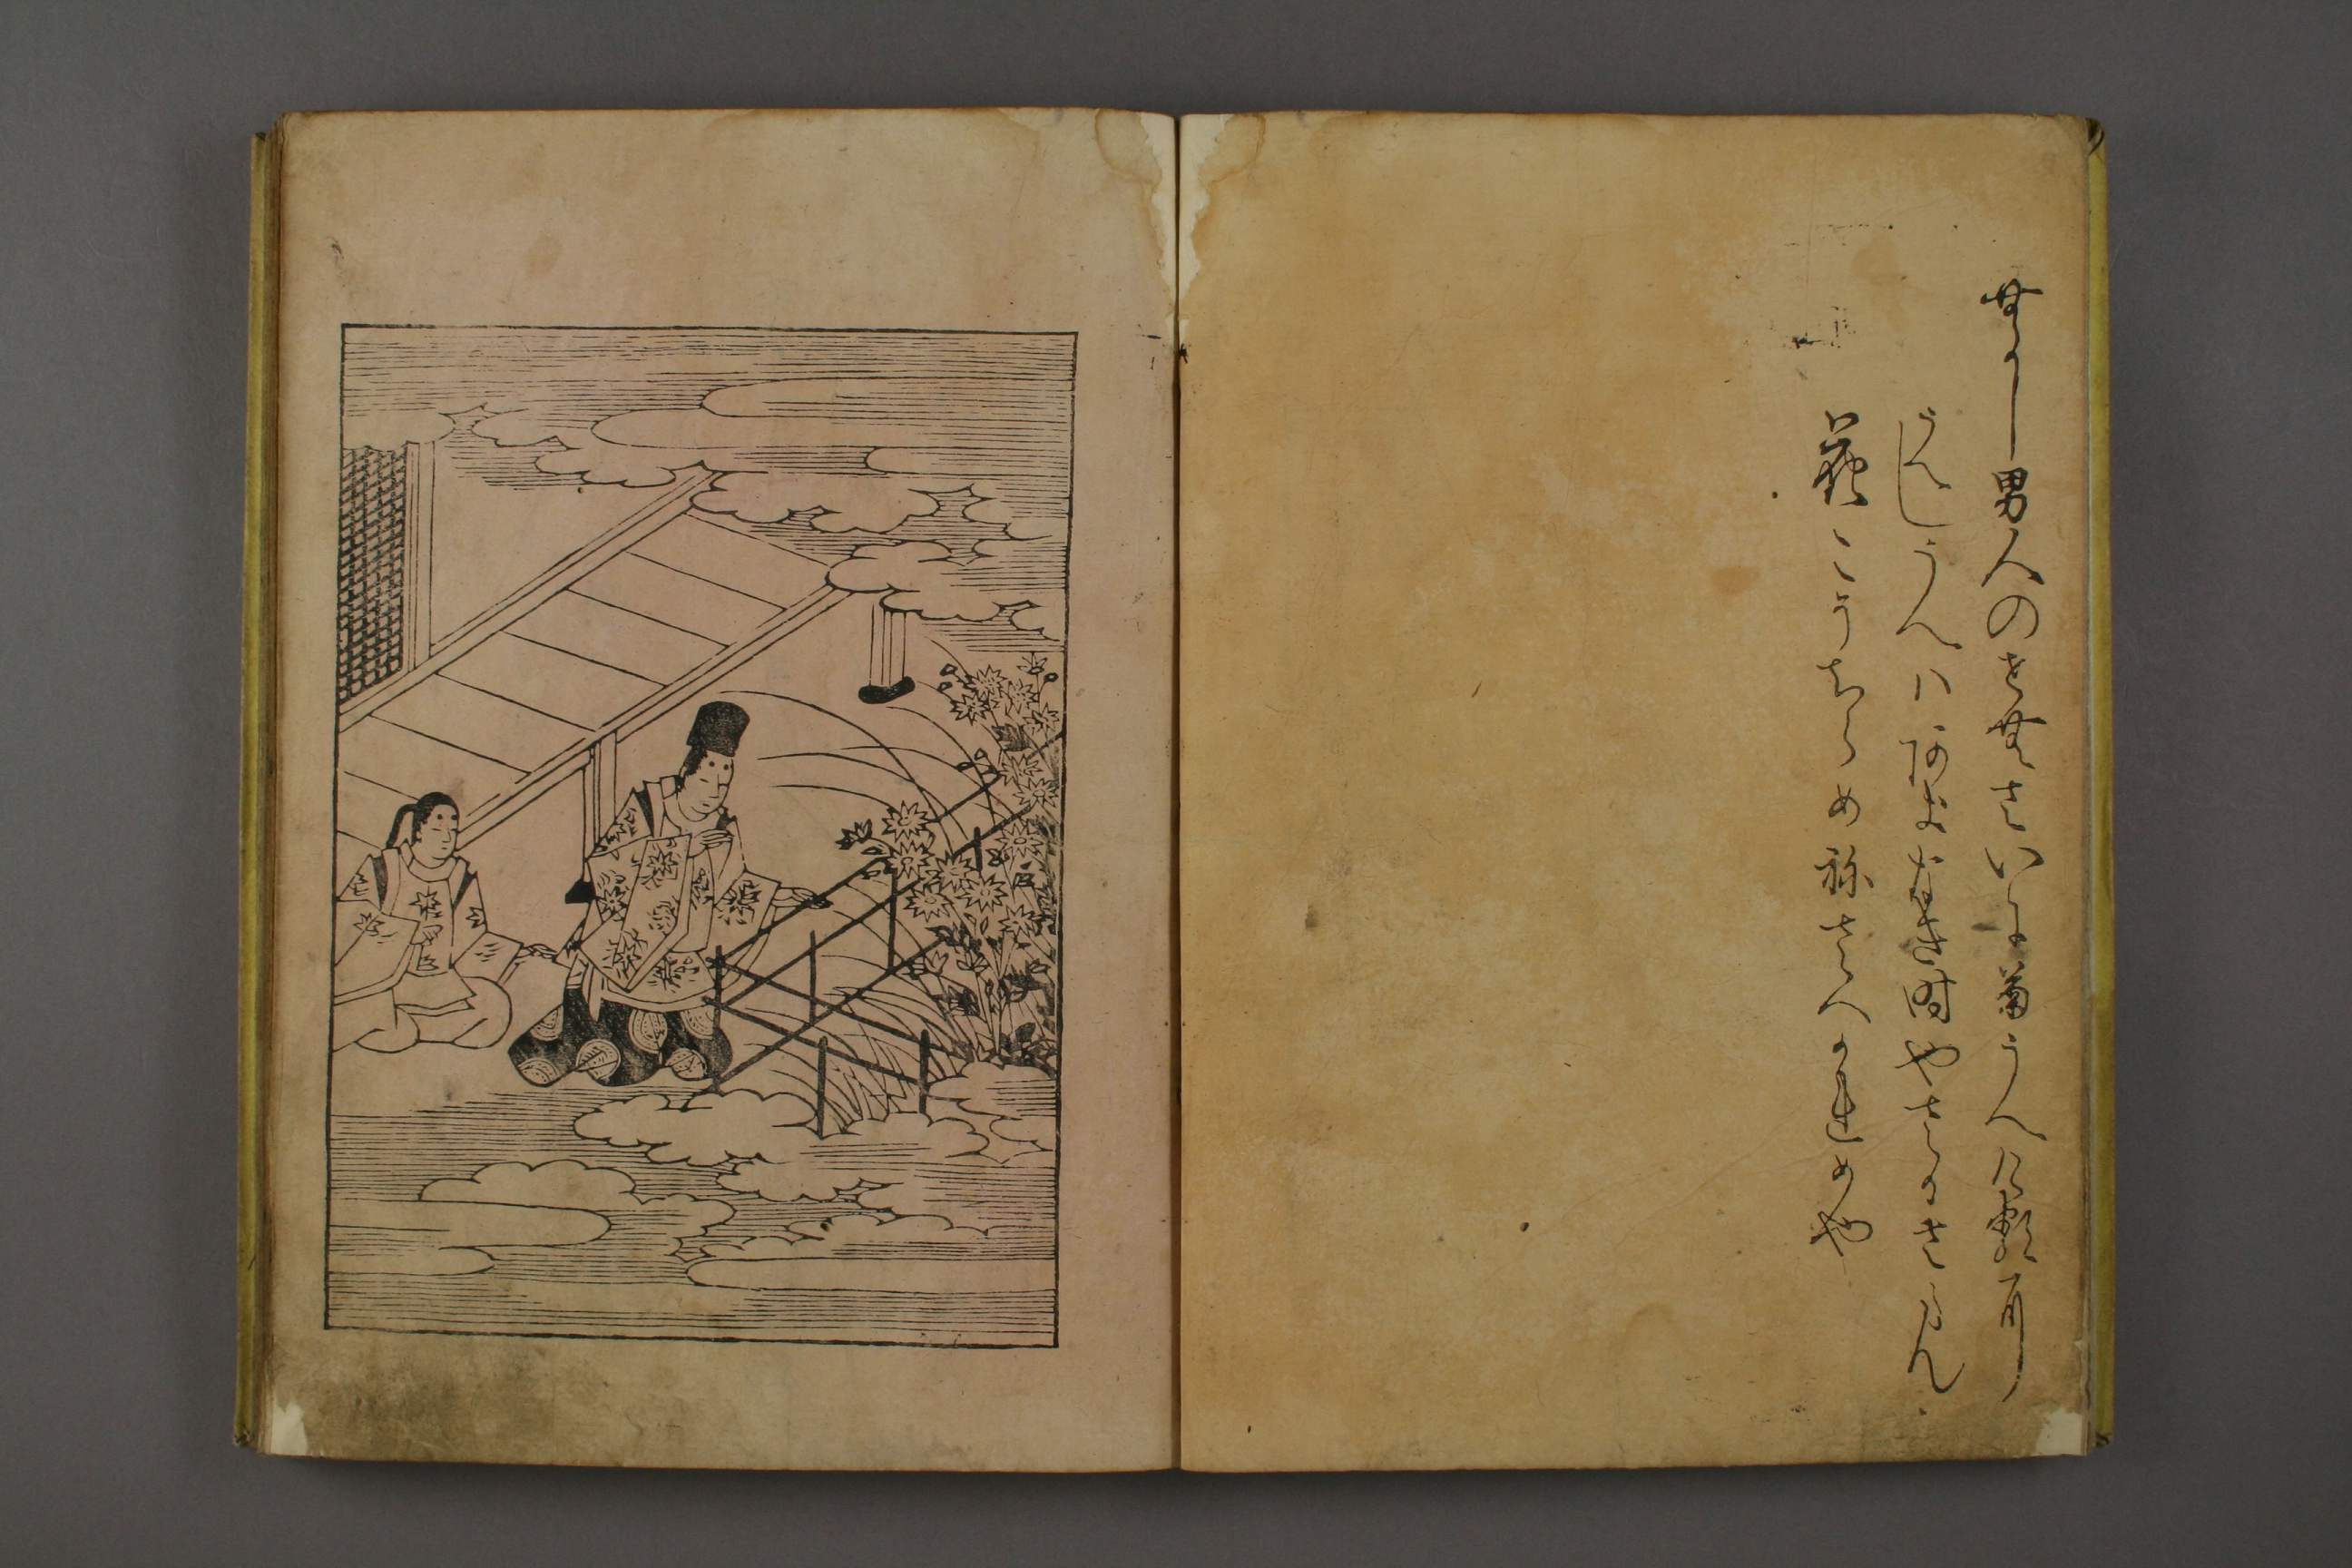 むかし男人のせむさいに菊うへける
うへしうへはあきなき時やさかさらん
花こそちらめ祢さへかれめや